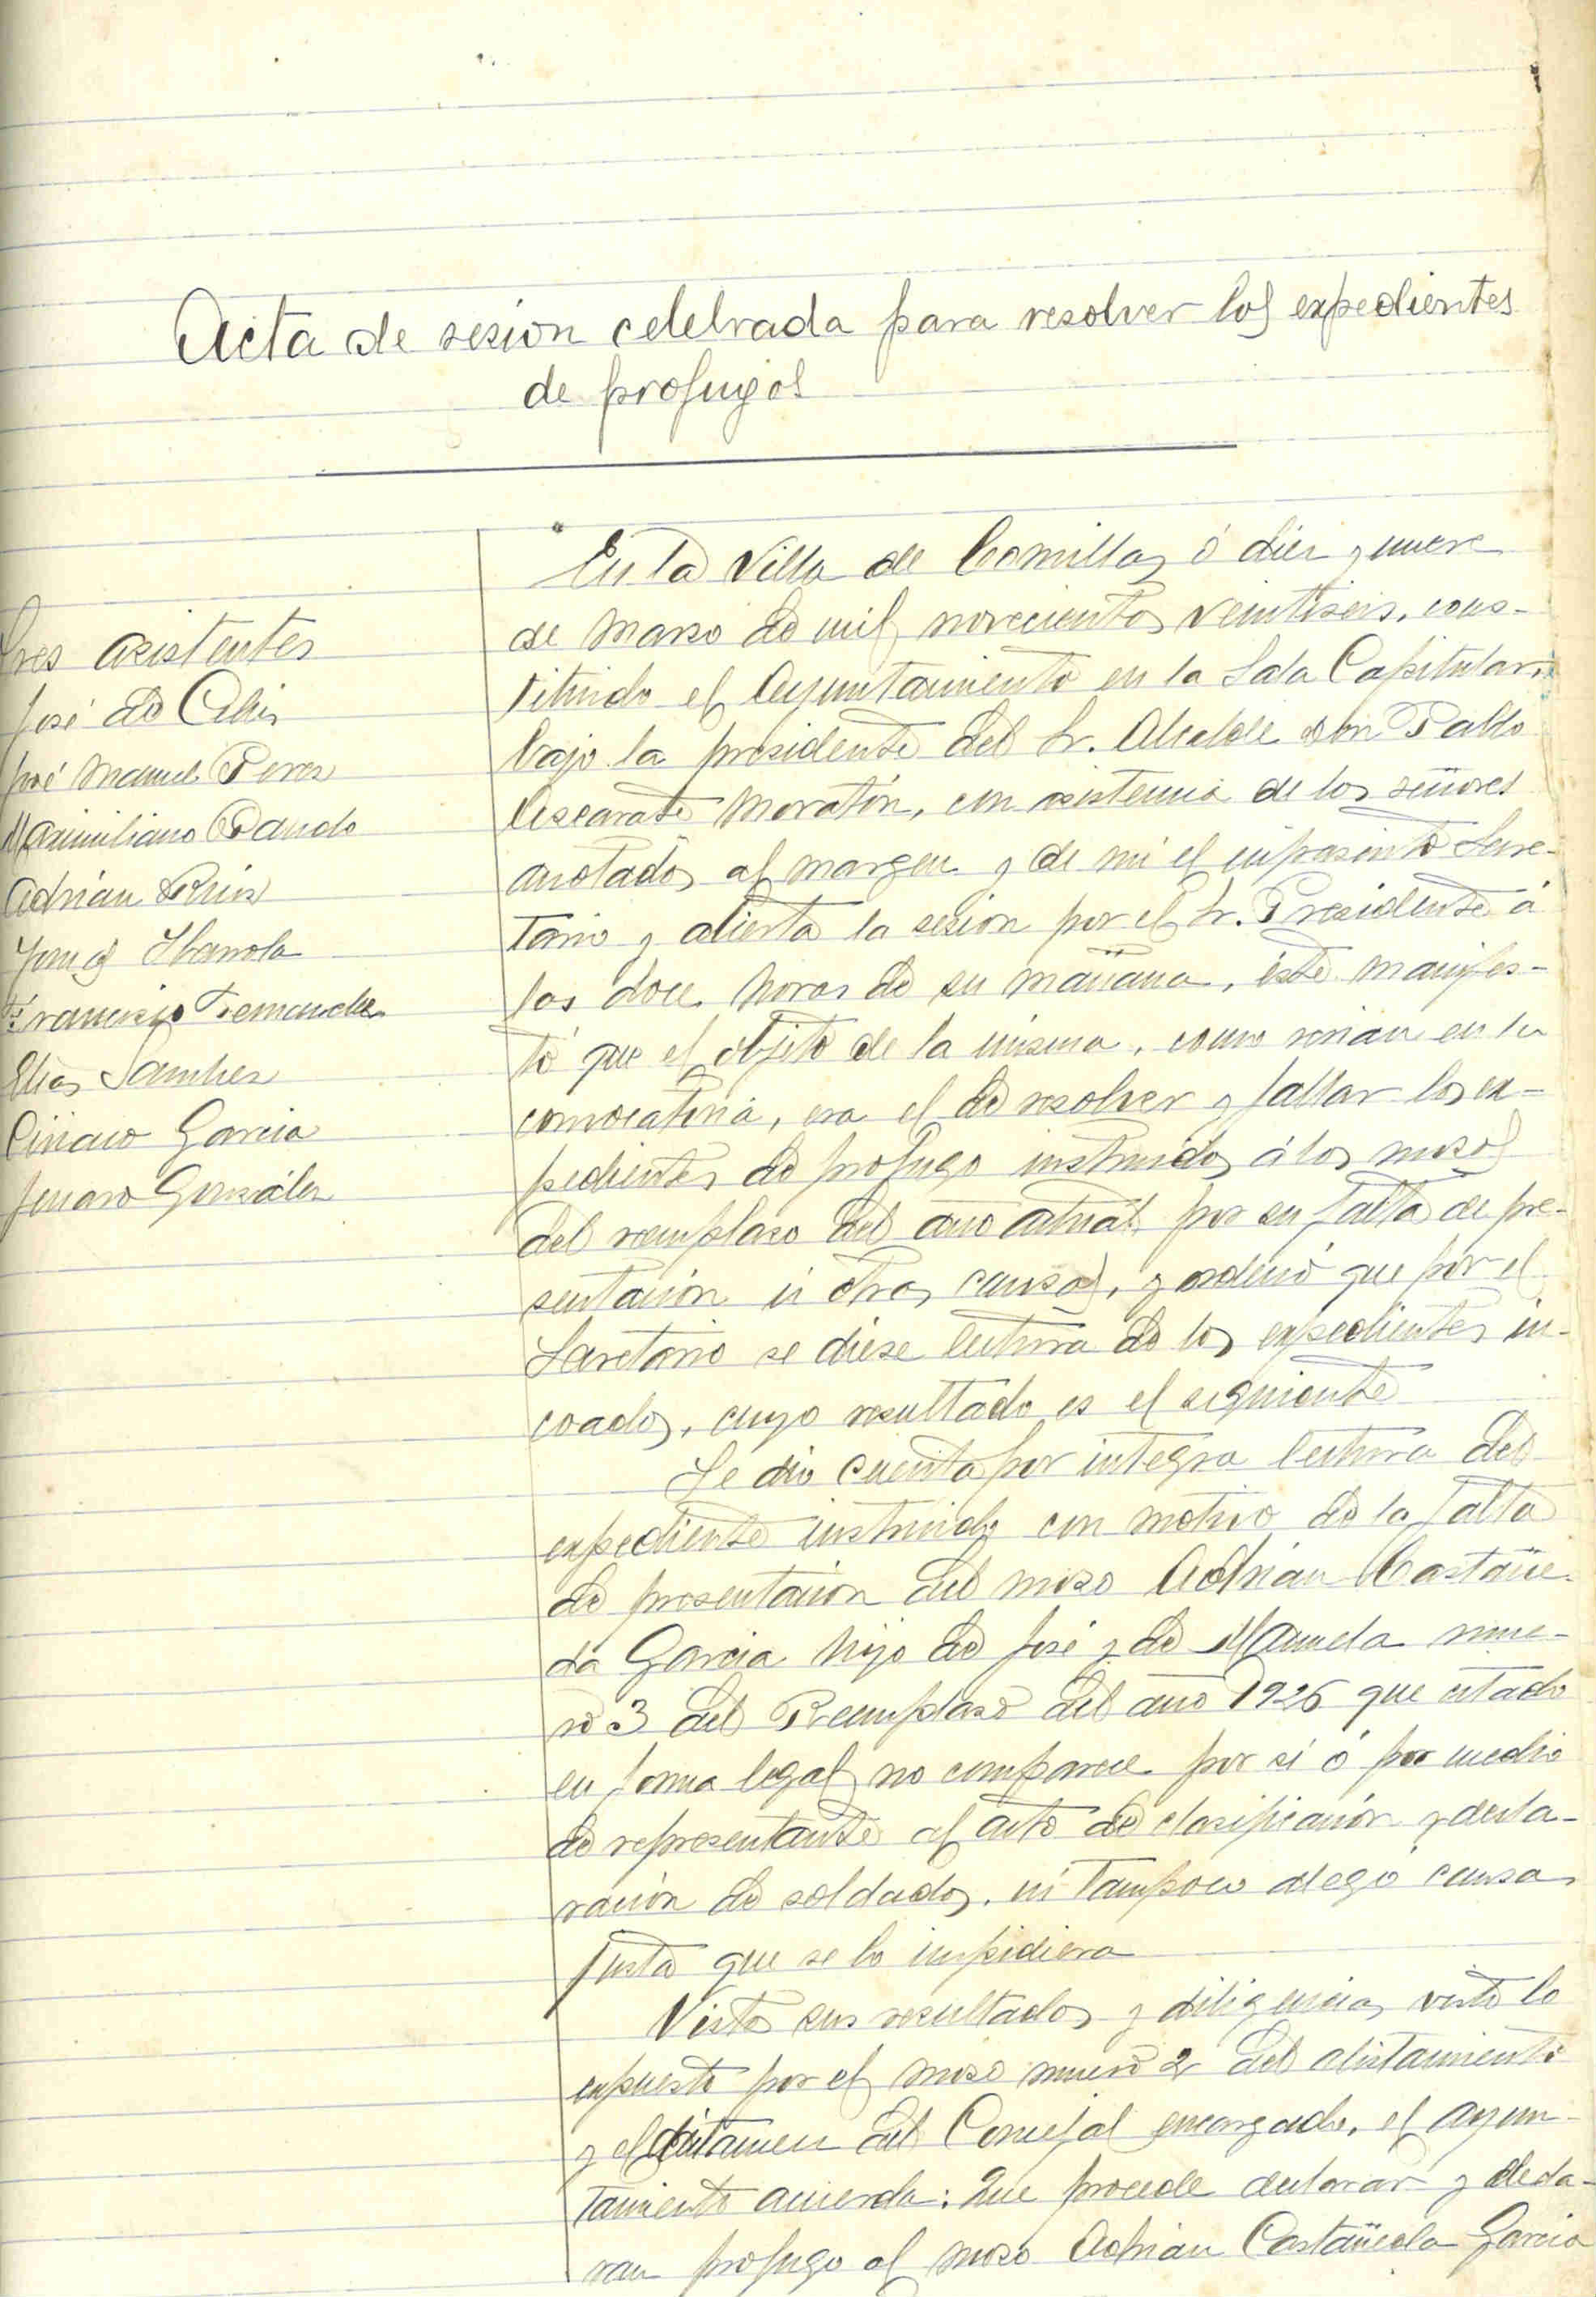 Acta de sesion celebrada para resolver los expedientes
de profugos
Sres asistentes
José de Celis
José Manuel Perez
Maximiliano Pando
Adrián Ruiz
Ibarrola
Francisco Fernandez
Elias Sanchez
Ciriaco Garcia
Jenaro González
En la Villa de Comillas á diez y nueve
de Marzo de mil novecientos veintiseis, cons-
tituido el Ayuntamiento en la Sala Capitular,
bajo la presidente del Sr. Alcalde don Pablo
Moratón, con asistencia de los señores
anotados al margen y de mi el infrascrito Secre-
tario y abierta la sesion por el Sr. Presidente á
las doce horas de su mañana, éste manifes-
tó que el objeto de la misma, como verian en la
convocatoria, era el de resolver y fallar los ex-
pedientes de profugo instruidos á los mozos
del reemplazo del año actual por su falta de pre-
sentación ú otras causas, y ordenó que por el
Secretario se diese lectura de los expedientes in-
coados, cuyo resultado es el siguiente
Se dio cuenta por integra lectura del
expediente instruido con motivo de la falta
de presentacion del mozo Adrian Castañe-
da Garcia hijo de José y de Manuela nume-
ro 3 del Reemplazo del año 1926 que citado
en forma legal no comparece por si ó por medio
de representante al acto de clasificación y decla-
ración de soldados, ni tampoco alegó causa
justa que se lo impidiera
Vistos sus resultados y diligencias, visto lo
expuesto por el mozo numero 2 del alistamiento
y el dictamen del Concejal encargado, el Ayun-
tamiento acuerda: Que procede declarar y decla-
ran profugo al mozo Adrian Castañeda Garcia